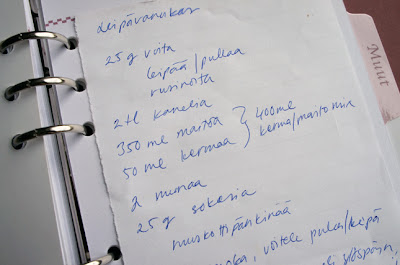 Leipävanukas
25 g voita
leipää/pullaa
rusinoita
2 tl kanelia
350 ml maitoa } 400 ml
50 ml kermaa kerma/maito mia
2 munaa
25 g sokeria
muskottipähkinää
voitele pulla/leipä
ylöspäin,
Muut